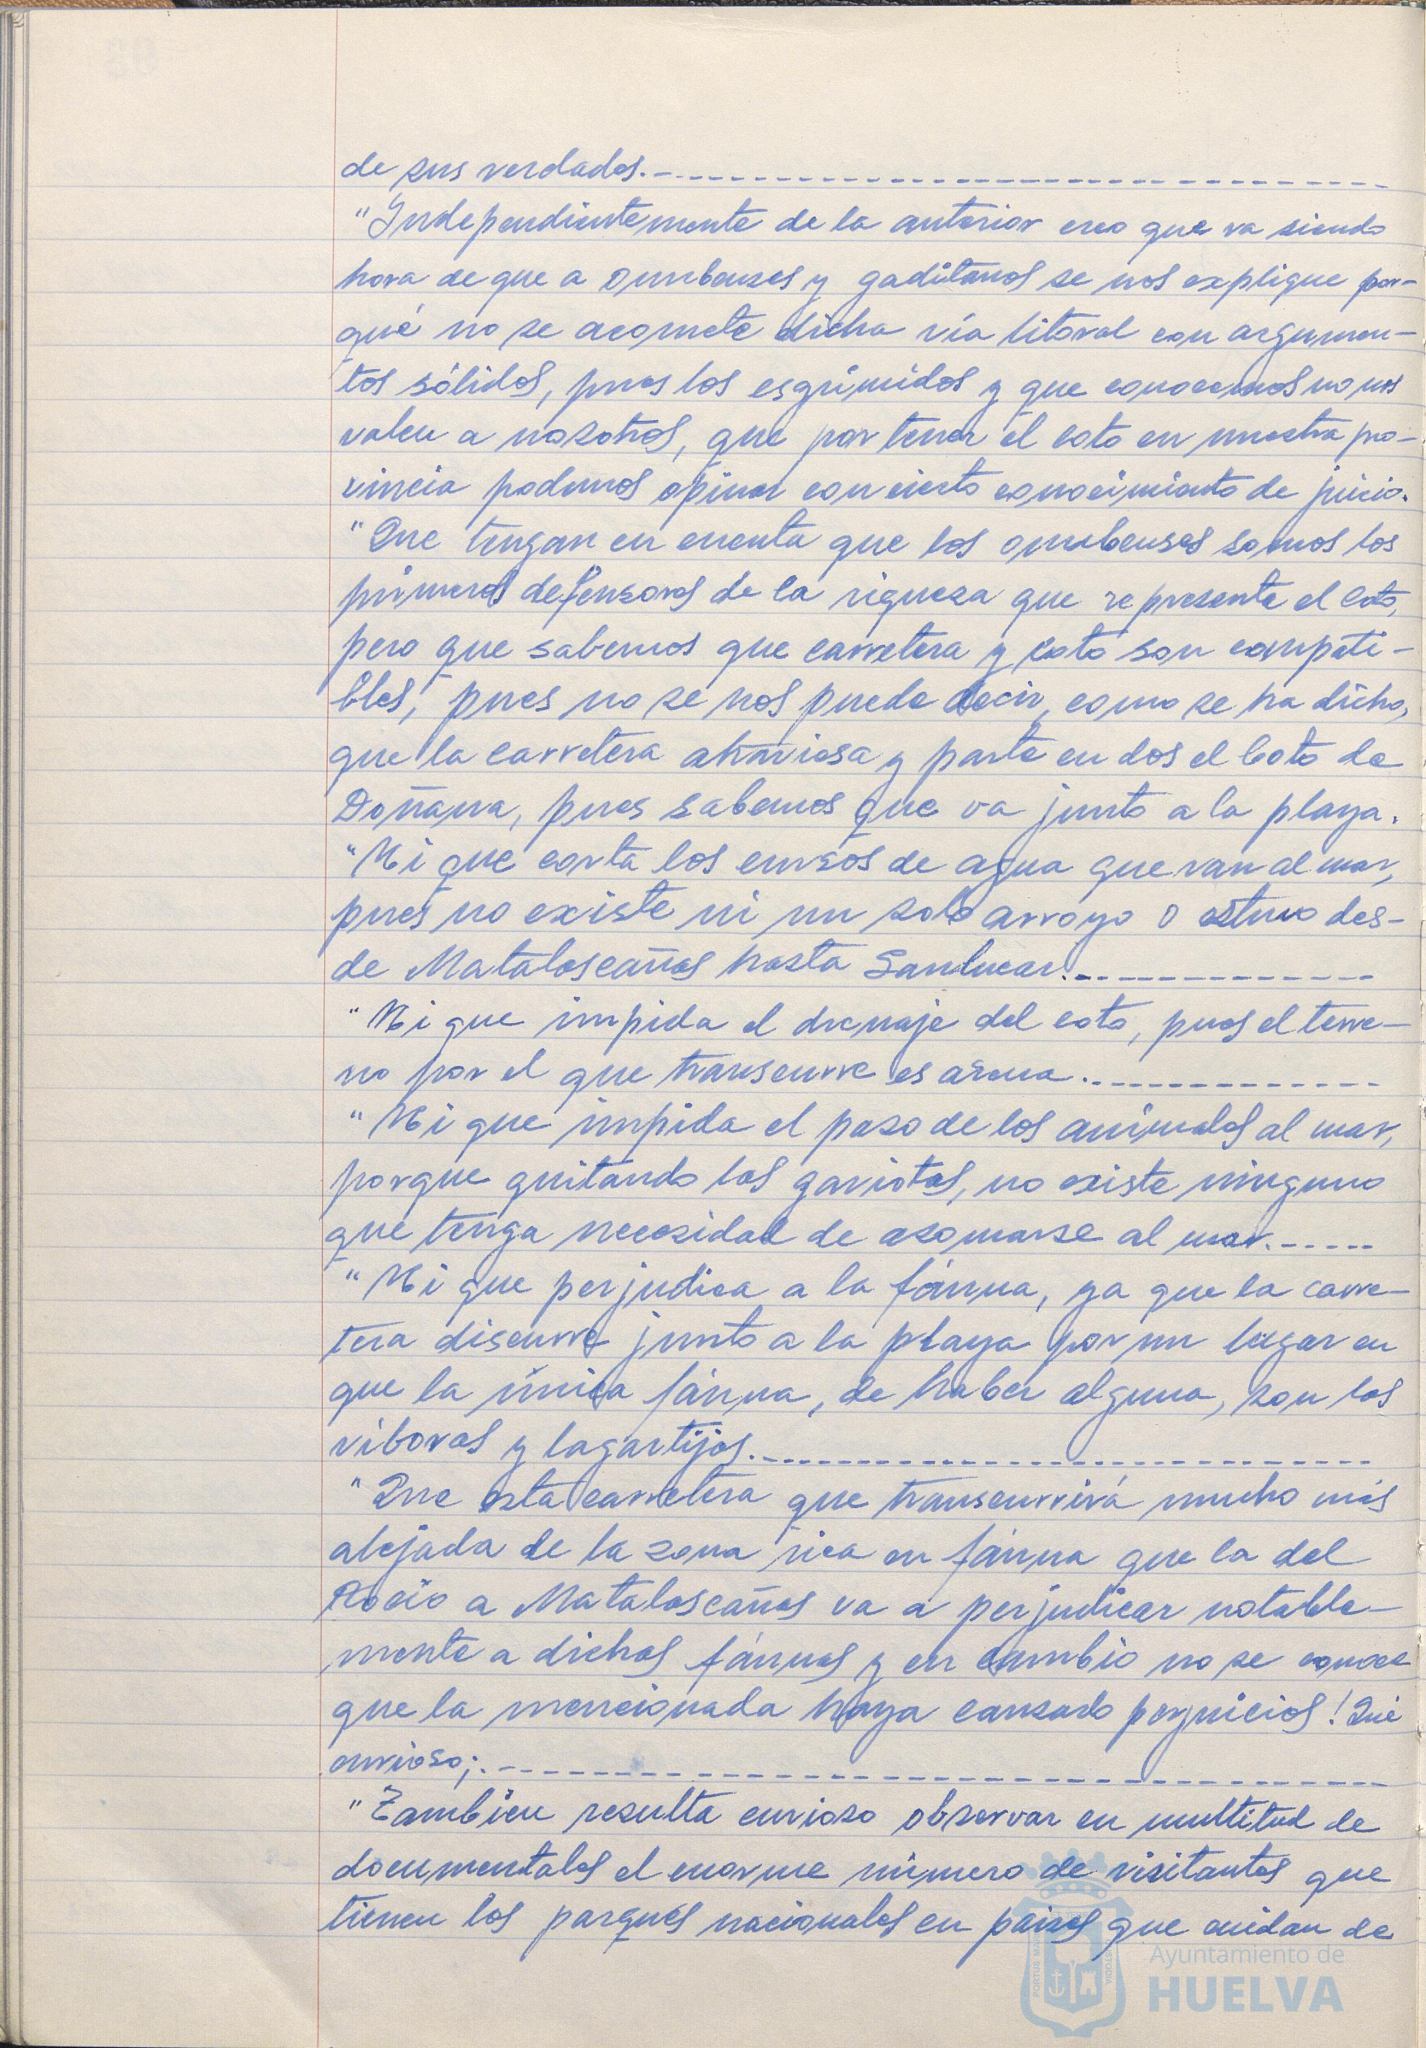 de sus verdades.
"Independientemente de la anterior creo que va siendo
hora de que a onubenses y gaditanos se nos explique por-
qué no se acomete dicha vía litoral con argumen-
tos sólidos, pues los esgrimidos y que conocemos no nos
valen a nosotros, que por tener el coto en nuestra pro-
vincia podemos opinar con cierto conocimiento de juicio.
"Que tengan en cuenta que los onubenses somos los
primeros defensores de la riqueza que representa el Coto,
pero que sabemos que carretera y coto son compati-
bles, pues no se nos puede decir, como se ha dicho,
que la carretera atraviesa y parte en dos el Coto de
Doñana, pues sabemos que va junto a la playa.
"Ni que corta los cursos de agua que van al mar,
pues no existe ni un solo arroyo o estero des-
de Matalascañas hasta Sanlucar.
"Ni que impida el drenaje del coto, pues el terre-
no por el que transcurre es arena.
"Ni que impida el paso de los animales al mar,
porque quitando las gaviotas, no existe ninguno
que tenga necesidad de asomarse al mar.
"Ni que perjudica a la fáunua, ya que la carre-
tera discurre junto a la playa por un lugar en
que la única fáunua, de haber alguna, son las
víboras y lagartijas.
"Que esta carretera que transcurrirá mucho más
alejada de la zona rica en fáunua que la del
Rocío a Matalascañas va a perjudicar notable-
mente a dichas fáunuas y en cambio no se conoce
que la mencionada haya causado perjuicios! Qué
curioso¡.
"Tambien resulta curioso observar en multitud de
documentales el enorme número de visitantes que
tienen los parques nacionales en paises que cuidan de
Ayuntamiento de
HUELVA